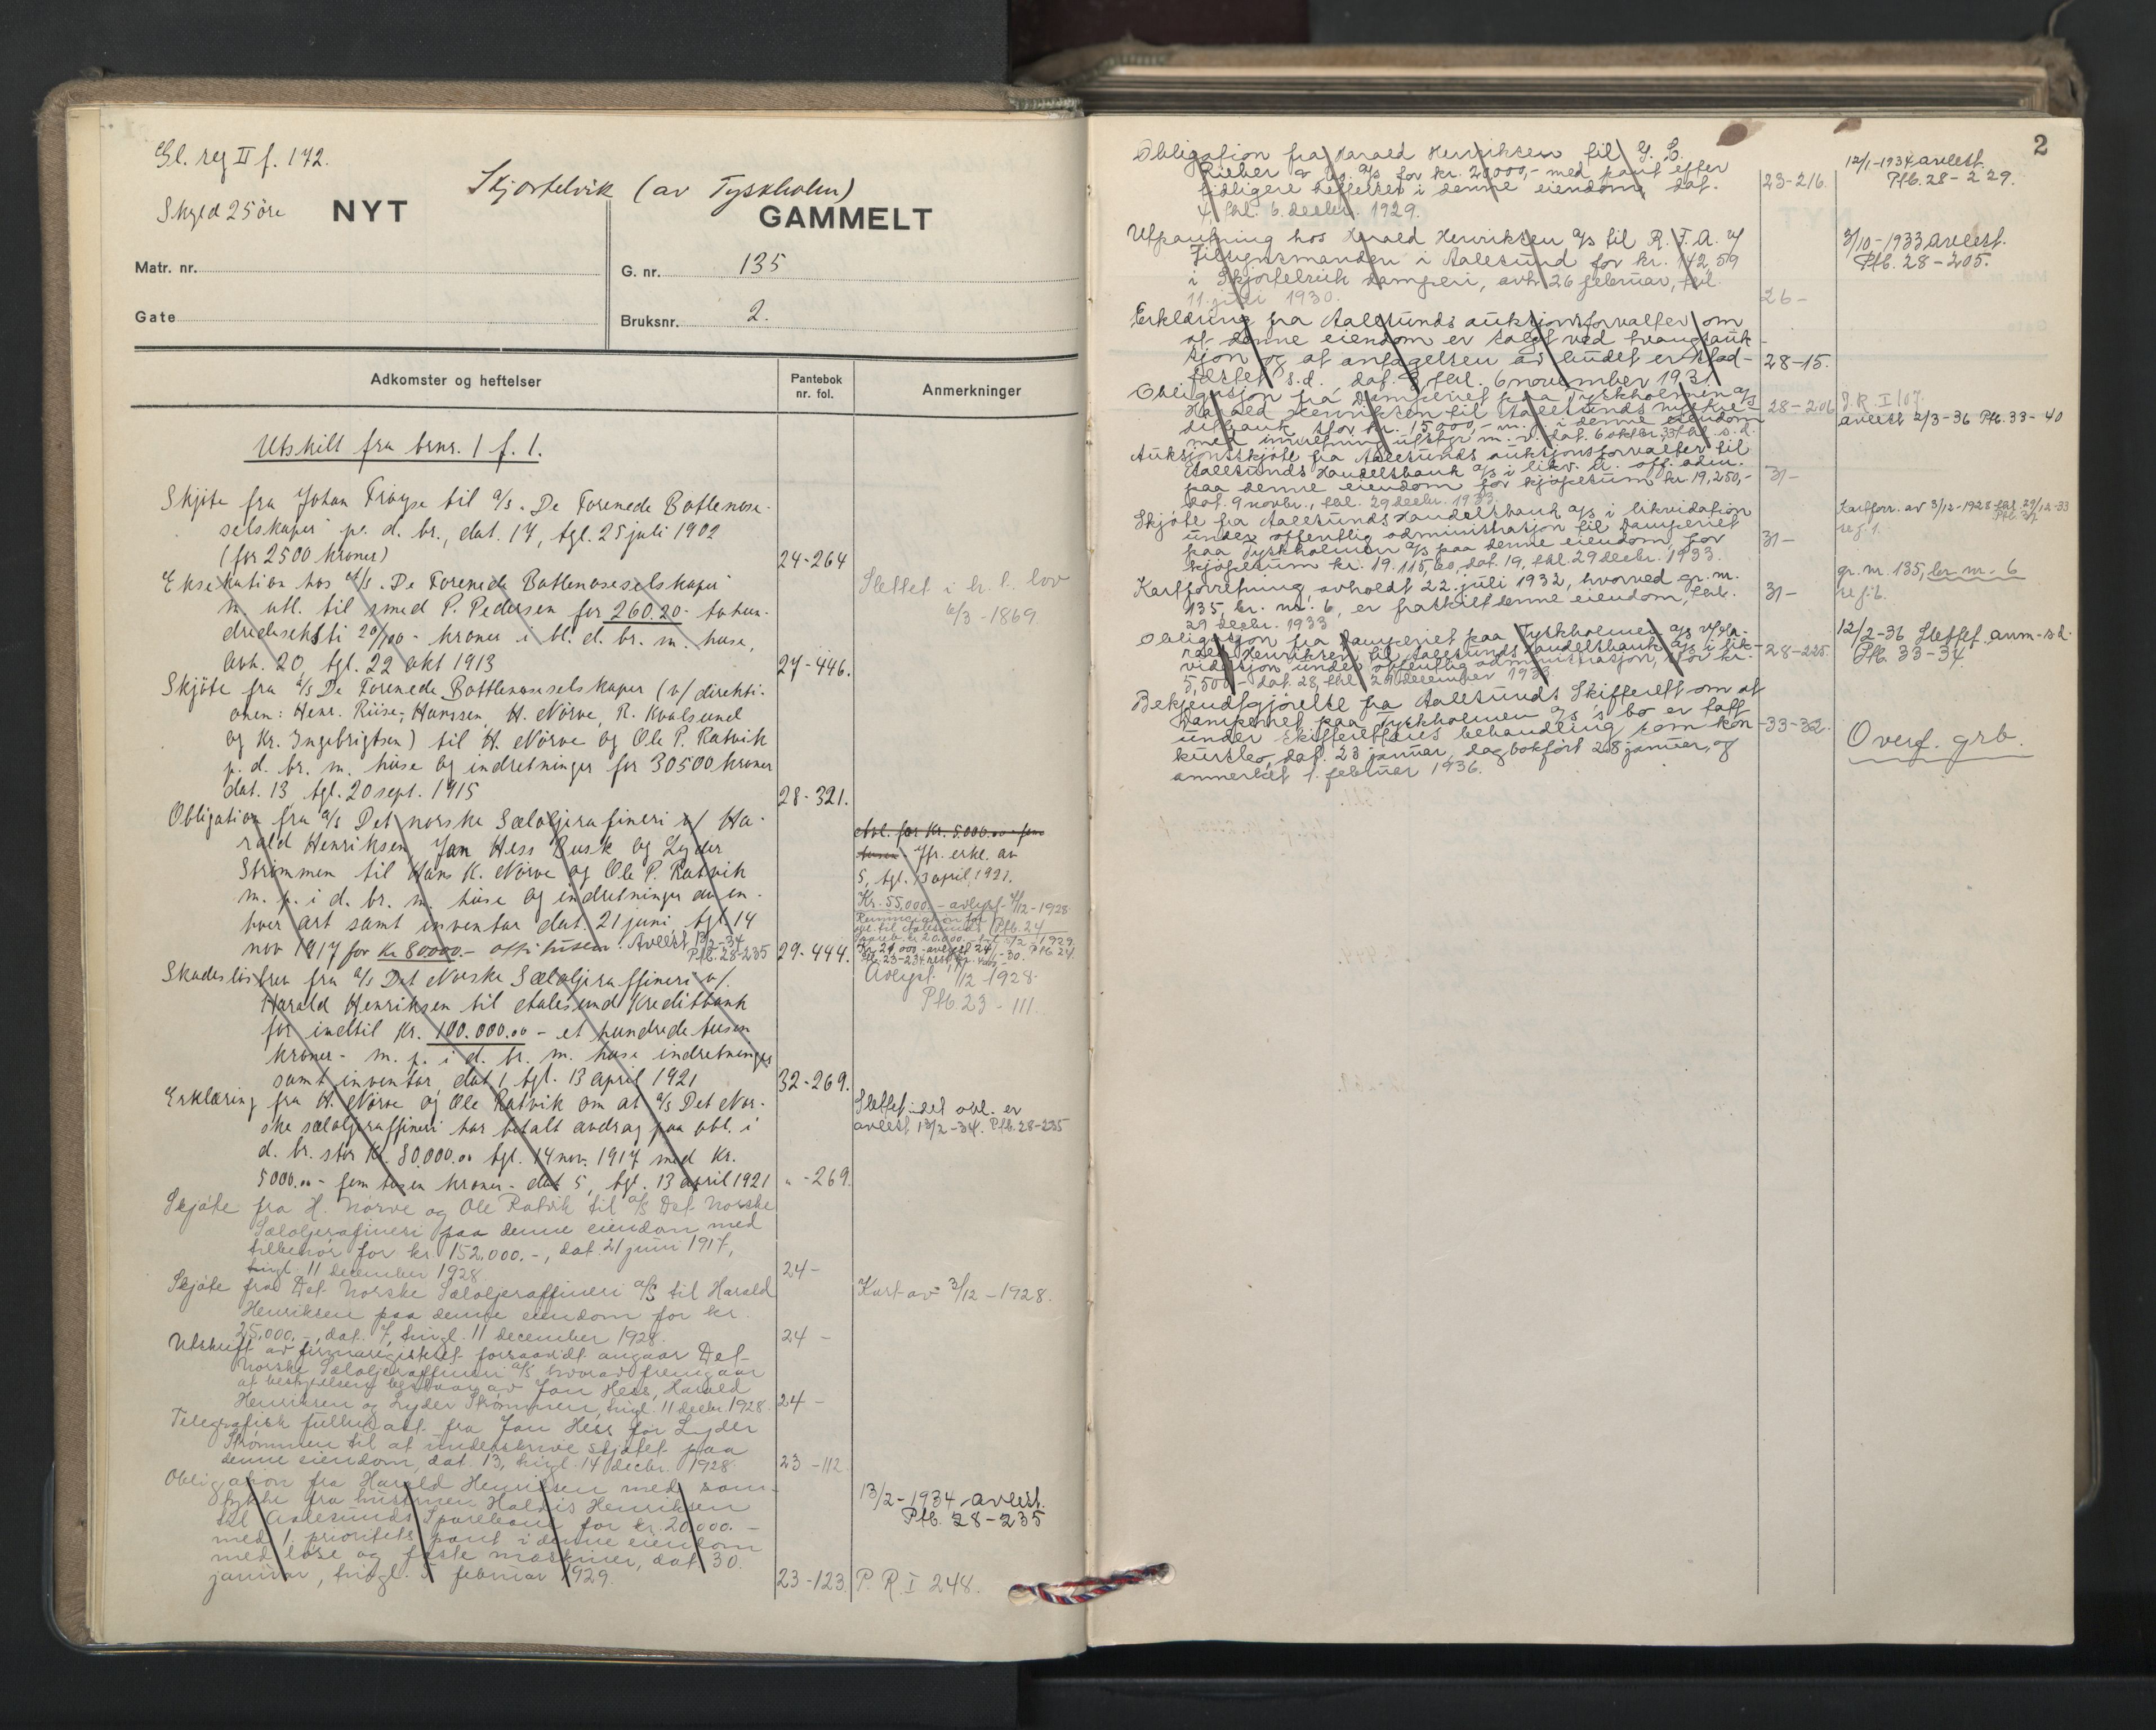 Gl. reg II f. 172.
Skjortelvik (av Tyskholm)
Skyld 25 öre NYT GAMMELT
Matr. nr. G. nr. 135
Gate Bruksnr. 2.
Adkomster og heftelser Pantebok nr. fol. Anmerkninger
Utskilt fra brnr. 1 f. 1.
Skjöte fra Johan til a/s. De Forenede Bottlenose-
selskaper p. d. br., dat. 17, tgl. 25 juli 1902
(for 2500 kroner) 24-264
Eksekution hos a/s. De Forenede Bottlenoseselskaper
m. utl. til smed P. Pedersen for 260.20 - tohun-
dredeseksti 20/100 - kroner i bl. d. br. m. huse,
avh. 20, tgl. 22 okt 1913 27-446.
Slettet i h. t. lov
6/3 - 1869.
Skjöte fra a/s De Forenede Bottlenoseselskaper (v/ direkti-
onen: Henr. Riise, Hanssen, H. Nörve, R. Kvalsund
og Kr. Ingebrigtsen) til H. Nörve og Ole P. Ratvik
p. d. br. m. huse og indretninger for 30500 kroner
dat. 13 tgl. 20 sept. 1915 28-321.
Obligation fra a/s Det norske Sæloljerafineri v/ Ha-
rald Henriksen, Jan Hess Busk og Lyder
Strömmen til Hans K. Nörve og Ole P. Ratvik
m. p. i d. br. m. huse og indretninger av en-
hver art samt inventar dat. 21 juni tgl 14
nov 1917 for Kr 80000.- otti tusen. Avlest 13/2-34
Ptb. 28-235 29-444.
Avl. for Kr. 5.000.00 - fem
tusen - Jfr. erkl. av
5, tgl. 13 april 1921.
Kr. 55,000.- avlyst 11/12-1928
Avlyst 11/12 - 1928
Ptb 23 - 111.
Skadeslösbrev fra a/s Det Norske Sæloljeraffineri v/.
Harald Henriksen til Aalesund Kreditbank
for indtil Kr. 100.000.00 - et hundrede tusen
kroner - m. p. i d. br. m. huse indretninger
samt inventar, dat 1, tgl. 13 april 1921 32-269.
Erklæring fra H. Nörve og Ole Ratvik om at a/s Det Nor-
ske sæloljeraffineri har betalt avdrag paa obl. i
d. br. stor Kr. 80.000.00 tgl. 14 nov. 1917 med Kr.
5000.00 - fem tusen kroner - dat 5, tgl. 13 april 1921 " -269.
Slettet idet obl. er
avlest 13/2-34. Ptb. 28-235
Skjöte fra H. Nörve og Ole Ratvik til a/s Det Norske
Sæloljerafineri paa denne eiendom med
tilbehör for kr. 152.000.-, dat. 21 juni 1917,
tingl. 11 december 1928 24-
Skjöte fra Det Norske Sæloljeraffineri a/s til Harald
Henriksen paa denne eiendom for kr.
25.000.-, dat. 7, tingl. 11 december 1928. 24 -
Kart av 3/12 - 1928.
Utskrift av firmaregistret forsaavidt angaar Det
Norske Sæloljeraffineri a/s hvorav fremgaar
at bestyrelsen bestaar av Jan Hess, Harald
Henriksen og Lyder Strömmen, tingl. 11 decbr. 1928. 24 -
Telegrafisk fuldmagt fra Jan Hess for Lyder
Strömmen til at underskrive skjötet paa
denne eiendom, dat. 13, tingl. 14 decbr. 1928. 23 - 112.
Obligation fra Harald Henriksen med sam-
tykke fra hustruen Haldis Henriksen
til Aalesunds Sparebank for kr. 20.000.-
med 1 prioritets pant i denne eiendom
med löse og faste maskiner, dat 30.
januar, tingl. 5 februar 1929. 23-123.
13/2 - 1934 avlest.
Ptb. 28-235
P. R. I 248.
2
Obligation fra Harald Henriksen til G. C.
Rieber & a/s for kr. 20000,- med pant efter
tidligere heftelser i denne eiendom, dat.
4, tgl. 6. decbr. 1929. 23-216.
12/1-1934 avlest.
Ptb. 28 - 229.
Utpantning hos Harald Henriksen a/s til R. T. A. v/
Tilsynsmanden i Aalesund for kr. 142,59
i Skjortelvik damperi, avh 26 februar, tgl.
11. juli 1930. 26 -
3/10-1933 avlest.
Ptb. 28 - 205.
Erklæring fra Aalesunds auksjonsforvalter om
at denne eiendom er solgt ved tvangsauk-
sjon og at antagelsen av budet er stad-
festet s.d., dat. tgl. 6 november 1931. 28-15.
Obligasjon fra Damperiet paa Tyskholmen a/s
Harald Henriksen til Aalesunds
for kr. 15000,- m. p. i denne eiendom
med innretning utstyr m. v. dat. 6 oktbr. 33, tgl s. d. 28-206
P. R. I 107.
avlest 2/3-36 Ptb. 33-40
Auksjonsskjöte fra Aalesunds auksjonsforvalter til
Aalesunds Handelsbank a/s i likv. u. off. adm.
paa denne eiendom for kjöpesum kr 19,250,-
dat. 9 novbr., tgl. 29 decbr. 1933. 31 -
Skjöte fra Aalesunds Handelsbank a/s i likvidation
under offentlig administrasjon til Damperiet
paa Tyskholmen a/s paa denne eiendom for
kjöpesum kr. 19.115,60, dat. 19, tgl. 29 decbr. 1933. 31 -
Kartforr. av 3/12-1928 tgl. 29/12-33
se f. 1.
Kartforretning, avholdt 22. juli 1932, hvorved gr. nr.
135, br. nr. 6, er fraskilt denne eiendom, tgl.
29 decbr. 1933 31 -
gr. nr. 135, br. nr. 6
se f. 6.
Obligasjon fra Damperiet paa Tyskholmen a/s v/ Ha-
rald Henriksen til Aalesunds Handelsbank a/s i lik-
vidasjon under offentlig administrasjon, stor kr.
5,500.- dat. 28, tgl. 29 december 1933. 28-225.
12/2-36 Slettet anm. s.d.
Ptb. 33-34.
Bekjendtgjörelse fra Aalesunds Skifterett om at
Damperiet paa Tyskholmen a/s's bo er tatt
under Skifterettens behandling som kon-
kursbo, dat. 23 januar, dagbokfört 28 januar, og
anmerket 1. februar 1936. 33-32.
Overf. grb.